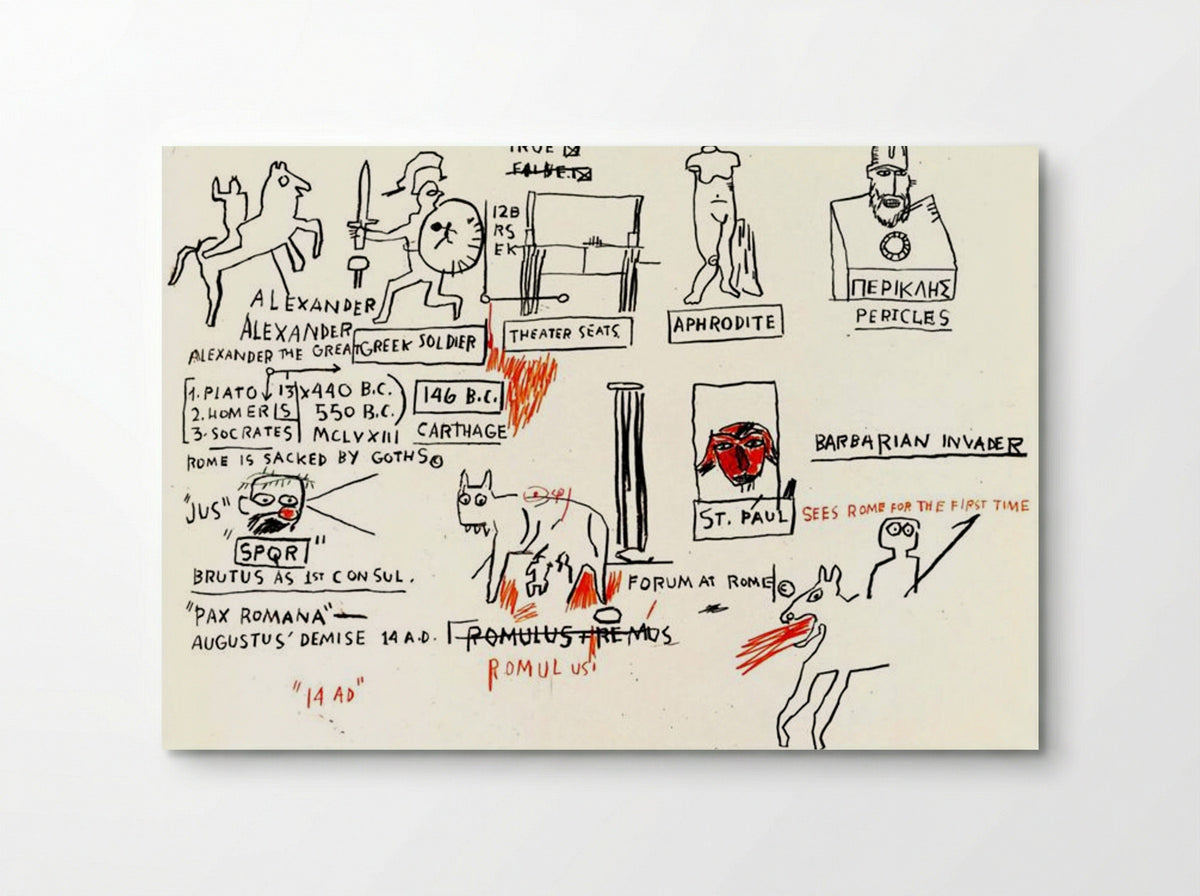 TRUE
FALSE
12B
RS
EK
ALEXANDER
ALEXANDER
ALEXANDER THE GREAT
GREEK SOLDIER
THEATER SEATS.
APHRODITE
ΠΕΡΙΚΛΗΣ
PERICLES
1. PLATO 13 x 440 B.C.
2. HOMER IS 550 B.C.
3. SOCRATES MCLVXIII
146 B.C.
CARTHAGE
ROME IS SACKED BY GOTHS©
BARBARIAN INVADER
"JUS"
"SPQR"
BRUTUS AS 1ST CONSUL.
ST. PAUL
SEES ROME FOR THE FIRST TIME
FORUM AT ROME ©
"PAX ROMANA"—
AUGUSTUS' DEMISE 14 A.D.
ROMULUS + REMUS
ROMULUS
"14 AD"